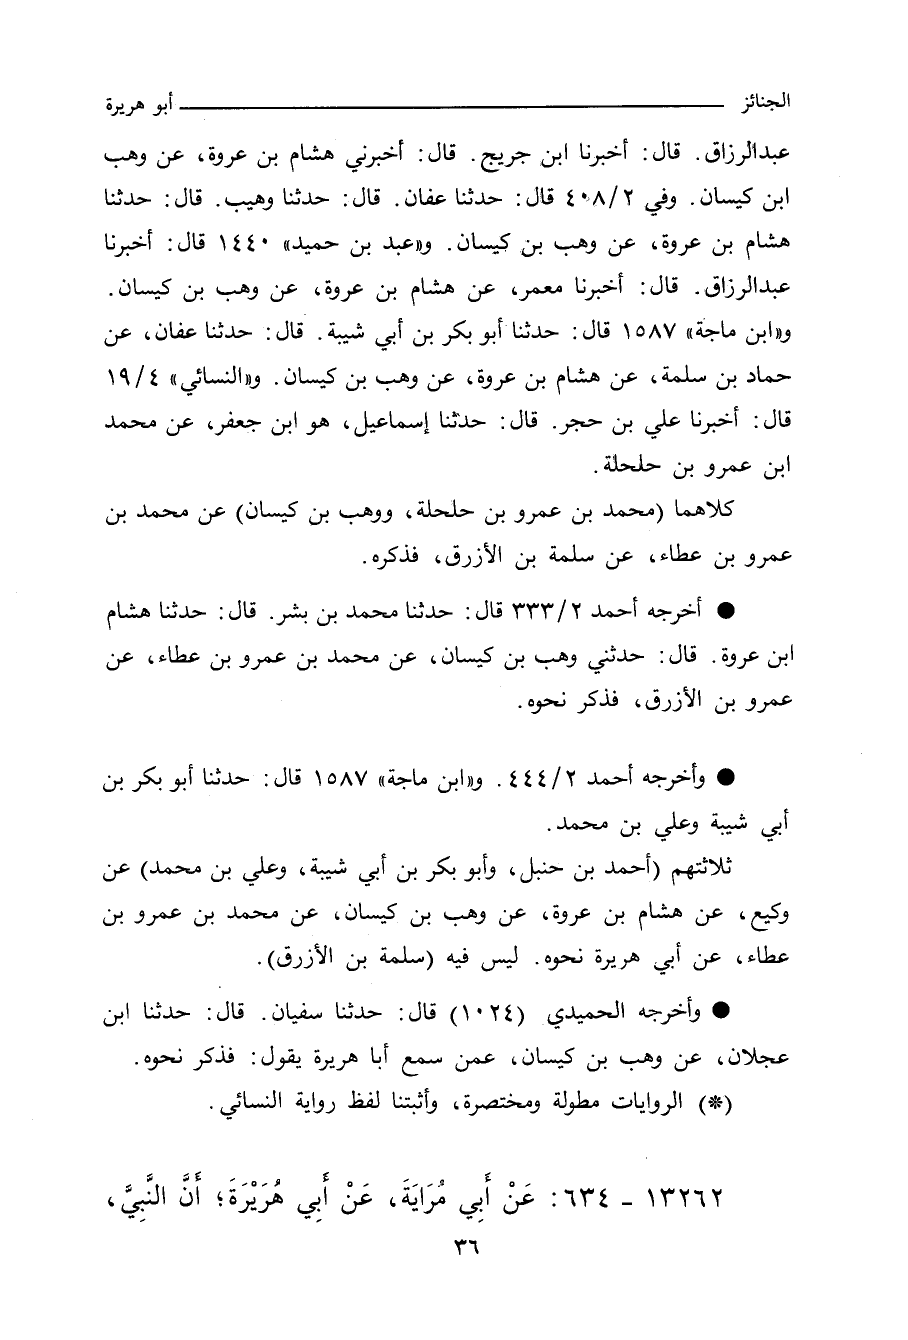 الجنائز ـــــــــــــــــــــ أبو هريرة
عبدالرزاق. قال: أخبرنا ابن جريج. قال: أخبرني هشام بن عروة، عن وهب
ابن كيسان. وفي ٤٠٨/٢ قال: حدثنا عفان. قال: حدثنا وهيب. قال: حدثنا
هشام بن عروة، عن وهب بن كيسان. و«عبد بن حميد» ١٤٤٠ قال: أخبرنا
عبدالرزاق. قال: أخبرنا معمر، عن هشام بن عروة، عن وهب بن كيسان.
و«ابن ماجة» ١٥٨٧ قال: حدثنا أبو بكر بن أبي شيبة. قال: حدثنا عفان، عن
حماد بن سلمة، عن هشام بن عروة، عن وهب بن كيسان. و«النسائي» ١٩/٤
قال: أخبرنا علي بن حجر. قال: حدثنا إسماعيل، هو ابن جعفر، عن محمد
ابن عمرو بن حلحلة.
كلاهما (محمد بن عمرو بن حلحلة، ووهب بن كيسان) عن محمد بن
عمرو بن عطاء، عن سلمة بن الأزرق، فذكره.
● أخرجه أحمد ٣٣٣/٢ قال: حدثنا محمد بن بشر. قال: حدثنا هشام
ابن عروة. قال: حدثني وهب بن كيسان، عن محمد بن عمرو بن عطاء، عن
عمرو بن الأزرق، فذكر نحوه.
● وأخرجه أحمد ٤٤٤/٢. و«ابن ماجة» ١٥٨٧ قال: حدثنا أبو بكر بن
أبي شيبة وعلي بن محمد.
ثلاثتهم (أحمد بن حنبل، وأبو بكر بن أبي شيبة، وعلي بن محمد) عن
وكيع، عن هشام بن عروة، عن وهب بن كيسان، عن محمد بن عمرو بن
عطاء، عن أبي هريرة نحوه. ليس فيه (سلمة بن الأزرق).
● وأخرجه الحميدي (١٠٢٤) قال: حدثنا سفيان. قال: حدثنا ابن
عجلان، عن وهب بن كيسان، عمن سمع أبا هريرة يقول: فذكر نحوه.
(*) الروايات مطولة ومختصرة، وأثبتنا لفظ رواية النسائي.
١٣٢٦٢ - ٦٣٤: عَنْ أَبِي مُرَايَةَ، عَنْ أَبِي هُرَيْرَةَ؛ أَنَّ النَّبِيَّ،
٣٦